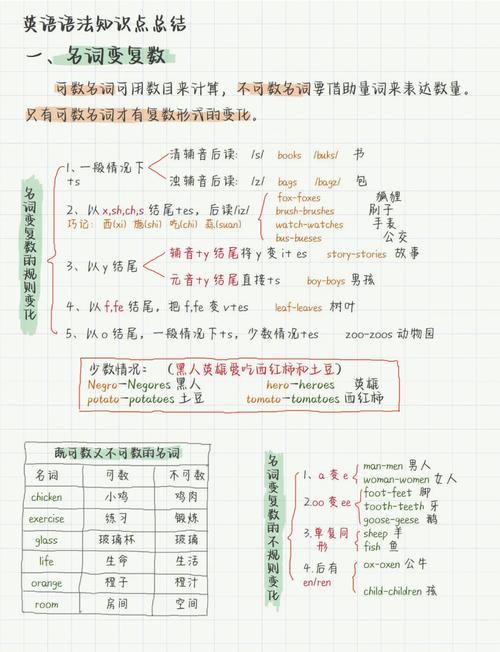 英语语法知识点总结
一、名词变复数
可数名词可用数目来计算，不可数名词要借助量词来表达数量。
只有可数名词才有复数形式的变化。
名词变复数的规则变化
1、一般情况下+s
清辅音后读: /s/ books /buks/ 书
浊辅音后读: /z/ bags /bagz/ 包
2、以x,sh,ch,s 结尾+es，后读/iz/
巧记: 西(xi) 施(shi) 吃(chi) 蒜(suan)
fox-foxes 狐狸
brush-brushes 刷子
watch-watches 手表
bus-bueses 公交
3、以y结尾
辅音+y 结尾将y变ites story-stories 故事
元音+y 结尾直接+s boy-boys 男孩
4、以f,fe 结尾，把f,fe 变v+es leaf-leaves 树叶
5、以o结尾，一般情况下+s，少数情况+es zoo-zoos 动物园
少数情况: (黑人英雄爱吃西红柿和土豆)
Negro→Negores 黑人 hero→heroes 英雄
potato→potatoes 土豆 tomato→tomatoes 西红柿
既可数又不可数的名词
名词 可数 不可数
chicken 小鸡 鸡肉
exercise 练习 锻炼
glass 玻璃杯 玻璃
life 生命 生活
orange 橙子 橙汁
room 房间 空间
名词变复数的不规则变化
1、a变e
man-men 男人
woman-women 女人
2.oo变ee
foot-feet 脚
tooth-teeth 牙
goose-geese 鹅
3.单复同形
sheep 羊
fish 鱼
4.后有en/ren
ox-oxen 公牛
child-children 孩